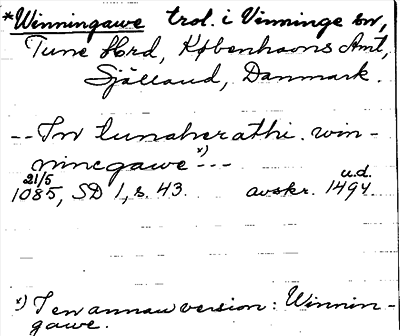 *Winningawe trol. i Vinninge sn,
Tune Hrd, Københavns Amt,
Själland, Danmark.
-- In tunaherathi. win-
ninegawe x) ---
21/5 1085, SD 1, s. 43. avskr. u.d. 1494
x) I en annan version: Winnin-
gawe.